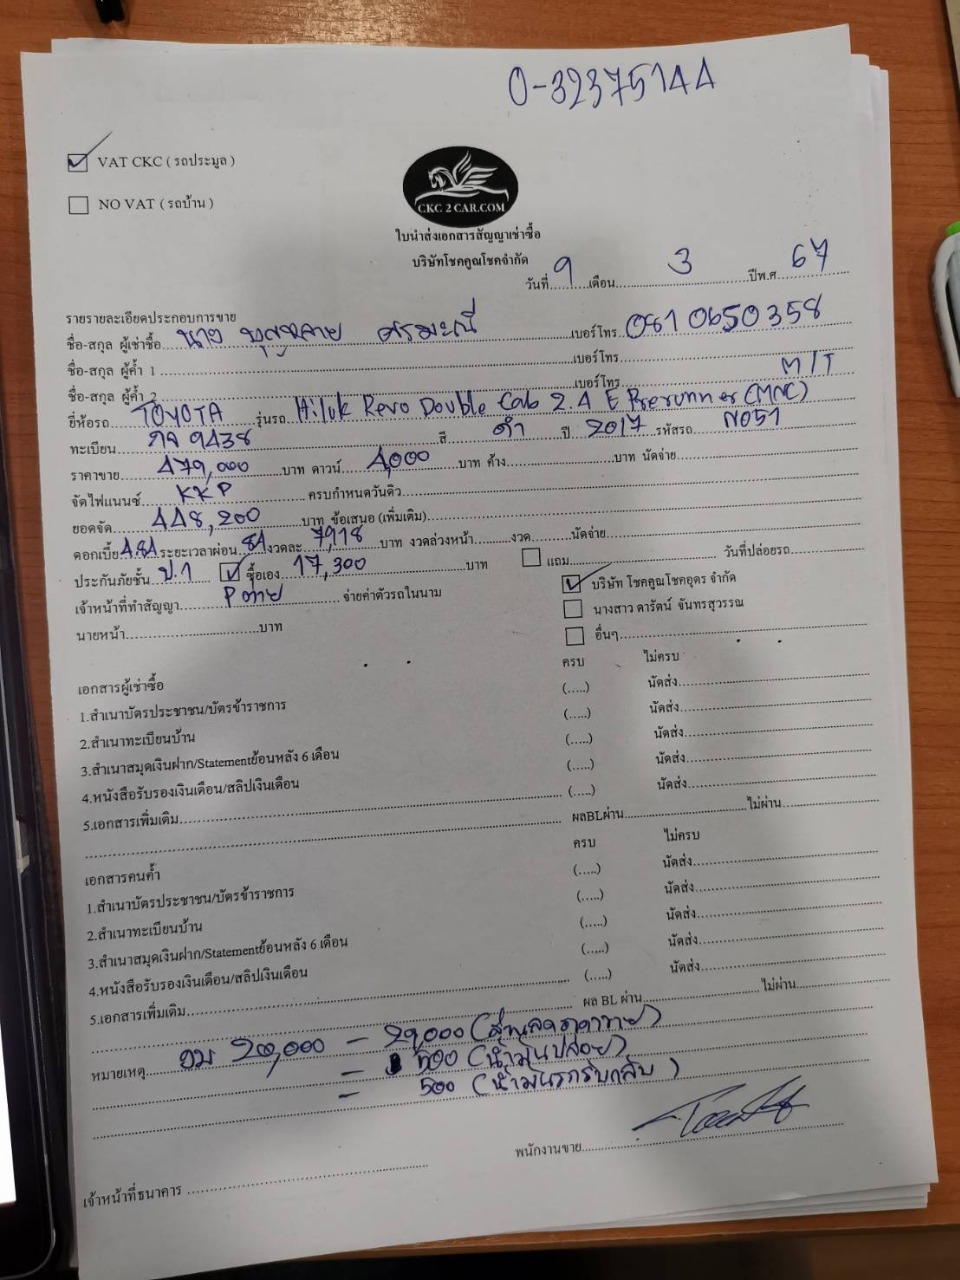 0-32375144
✓ VAT CKC ( รถประมูล )
NO VAT ( รถบ้าน )
CKC 2 CAR.COM
ใบนำส่งเอกสารสัญญาเช่าซื้อ
บริษัทโชคคูณโชคจำกัด
วันที่ 9 เดือน 3 ปีพ.ศ. 67
รายรายละเอียดประกอบการขาย
ชื่อ-สกุล ผู้เช่าซื้อ นาย บุญหลาย ศรีมะณี เบอร์โทร 081 0650358
ชื่อ-สกุล ผู้ค้ำ 1 เบอร์โทร
ชื่อ-สกุล ผู้ค้ำ 2 เบอร์โทร M/T
ยี่ห้อรถ TOYOTA รุ่นรถ Hilux Revo Double Cab 2.4 E Prerunner (MNC)
ทะเบียน 9438 สี ดำ ปี 2017 รหัสรถ N051
ราคาขาย 479,000 บาท ดาวน์ 4,000 บาท ค้าง บาท นัดจ่าย
จัดไฟแนนซ์ KKP ครบกำหนดวันดิว
ยอดจัด 448,200 บาท ข้อเสนอ (เพิ่มเติม)
ดอกเบี้ย 4.84 ระยะเวลาผ่อน 84 งวดละ 7,918 บาท งวดล่วงหน้า งวด นัดจ่าย
ประกันภัยชั้น ป.1 ✓ ซื้อเอง 17,300 บาท แถม วันที่ปล่อยรถ
เจ้าหน้าที่ทำสัญญา P ต่าย จ่ายค่าตัวรถในนาม ✓ บริษัท โชคคูณโชคอุดร จำกัด
นางสาว ดารัตน์ จันทรสุวรรณ
นายหน้า บาท อื่นๆ
เอกสารผู้เช่าซื้อ ครบ ไม่ครบ
1.สำเนาบัตรประชาชน/บัตรข้าราชการ (.....) นัดส่ง
2.สำเนาทะเบียนบ้าน (.....) นัดส่ง
3.สำเนาสมุดเงินฝาก/Statementย้อนหลัง 6 เดือน (.....) นัดส่ง
4.หนังสือรับรองเงินเดือน/สลิปเงินเดือน (.....) นัดส่ง
5.เอกสารเพิ่มเติม (.....) นัดส่ง
ผลBLผ่าน ไม่ผ่าน
เอกสารคนค้ำ ครบ ไม่ครบ
1.สำเนาบัตรประชาชน/บัตรข้าราชการ (.....) นัดส่ง
2.สำเนาทะเบียนบ้าน (.....) นัดส่ง
3.สำเนาสมุดเงินฝาก/Statementย้อนหลัง 6 เดือน (.....) นัดส่ง
4.หนังสือรับรองเงินเดือน/สลิปเงินเดือน (.....) นัดส่ง
5.เอกสารเพิ่มเติม (.....) นัดส่ง
ผล BL ผ่าน ไม่ผ่าน
หมายเหตุ - 29,000 (ส่วนลดราคาขาย)
- 500 (น้ำมันปล่อย)
- 500 (น้ำมันรถรับกลับ)
พนักงานขาย
เจ้าหน้าที่ธนาคาร